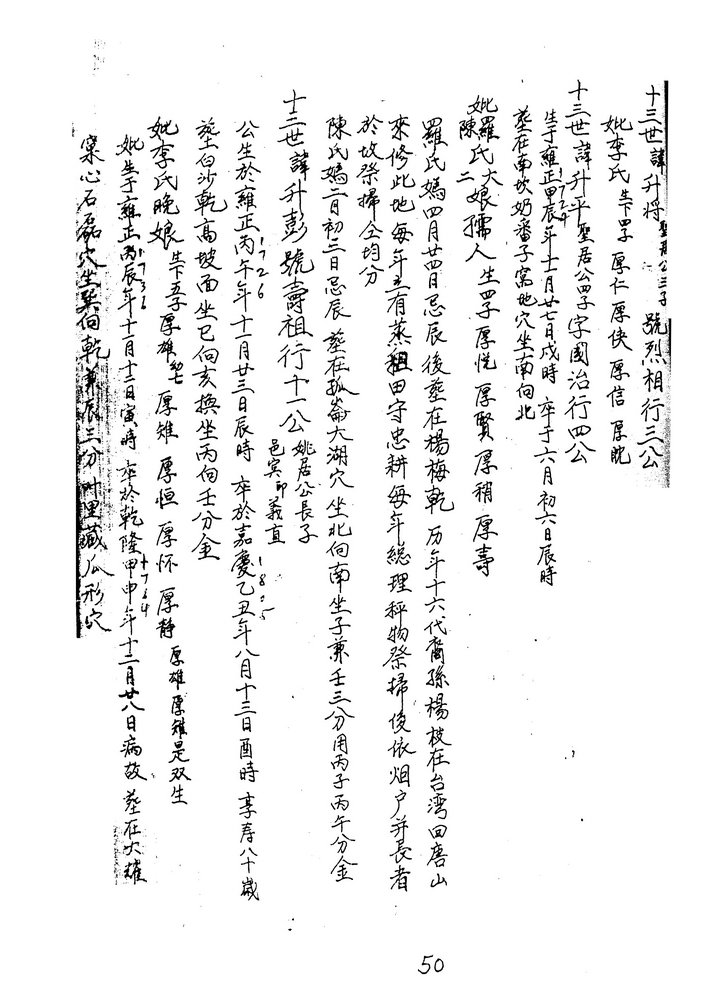 十三世諱升將 聖居公三子 號烈相行三公
妣李氏 生下四子 厚仁 厚俠 厚信 厚眈
十三世諱升平 聖居公四子 字國治行四公
生于雍正甲辰年十一月廿七日戌時 卒于六月初六日辰時
1724
葬在南坎奶番子窩地穴坐南向北
妣羅陳氏大二娘孺人 生四子 厚悦 厚賢 厚稍 厚壽
羅氏媽四月廿四日忌辰後葬在楊梅乾 历年十六代裔孫楊枝在台湾回唐山
來修此地每年立有蒸祖田守忠耕每年総理秤物祭掃後依烟户并長者
於坟祭掃仝均分
陳氏媽二月初三日忌辰 葬在孤崙大湖穴坐北向南坐子兼壬三分用丙子丙午分金
十三世諱升彭號壽祖行十一公 姚居公長子
邑宾 即義直
公生於雍正丙午年十一月廿三日辰時 卒於嘉慶乙丑年八月十三日酉時 享寿八十歲
1726
1805
葬白沙乾高坡面坐巳向亥换坐丙向壬分金
妣李氏晚娘 生下五子 厚雄 厚雉 厚恒 厚怀 厚静 厚雄厚雉是双生
妣生于雍正丙辰年十一月十二日寅時 卒於乾隆甲申年十二月廿八日病故 葬在火雄
1736
1764
窠心石磊穴坐巽向乾兼辰三分 埋藏瓜形穴
50